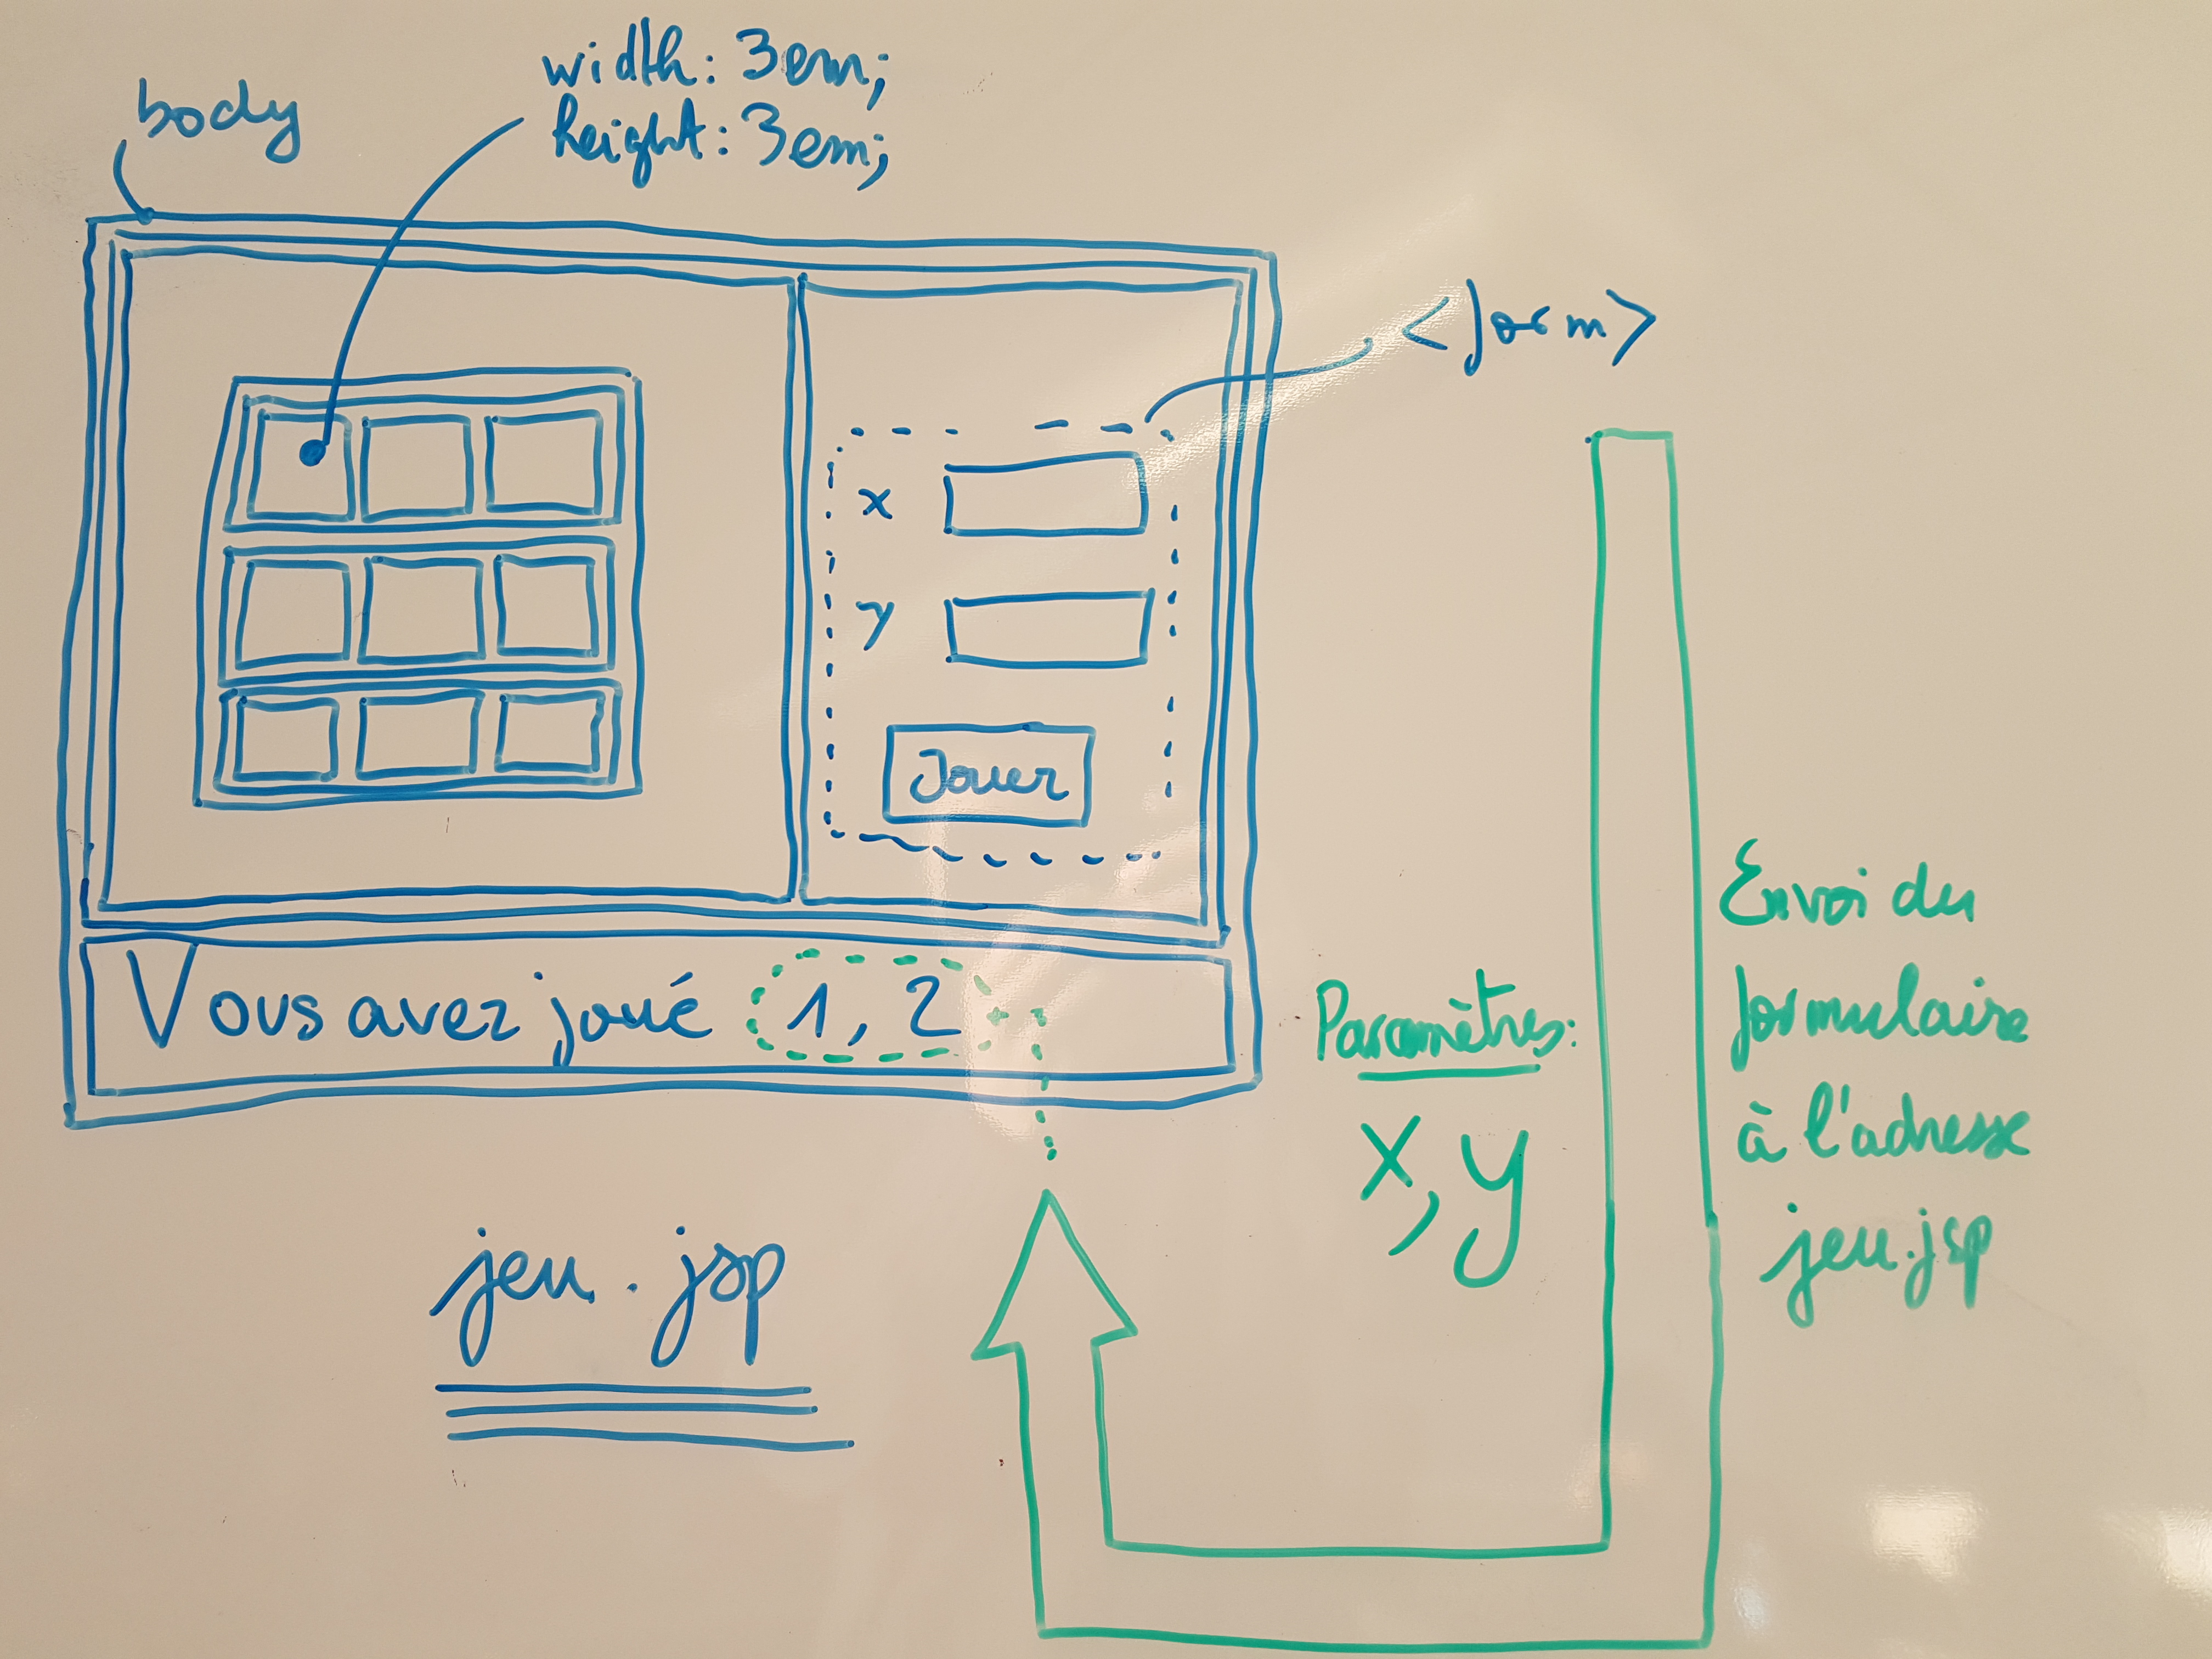 body
width: 3em;
height: 3em;
<form>
x
y
Jouer
Vous avez joué 1, 2
jeu.jsp
Paramètres:
x, y
Envoi du
formulaire
à l'adresse
jeu.jsp